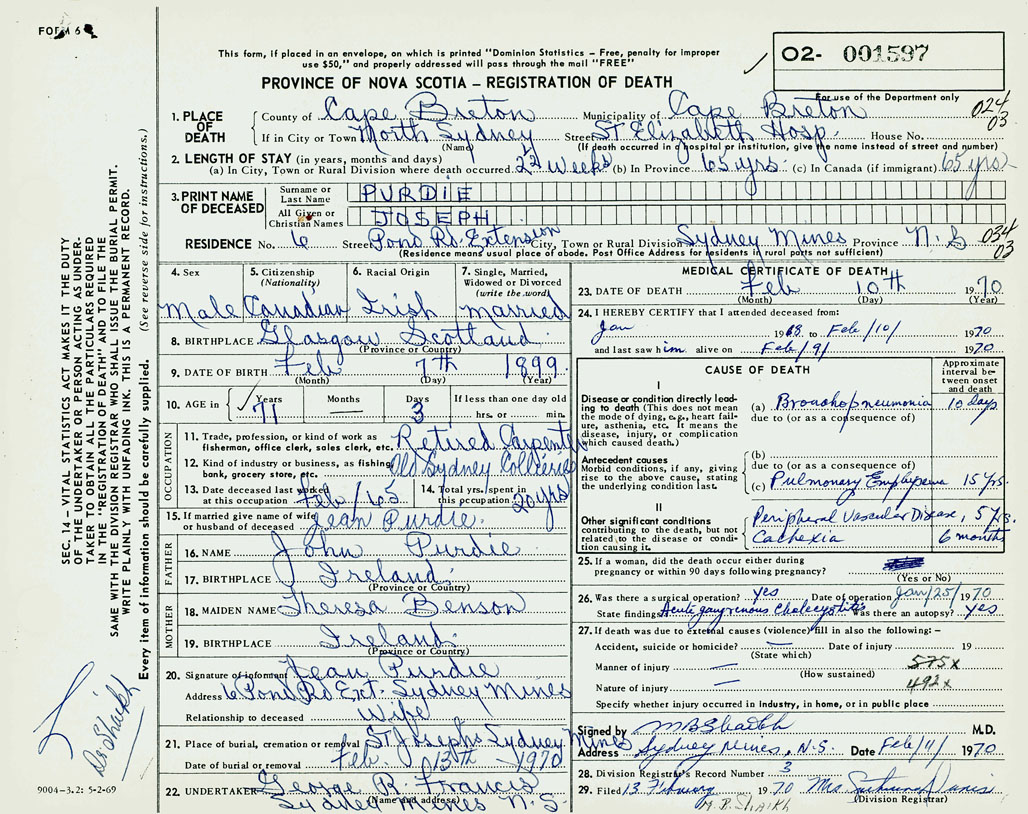 FORM 6
This form, if placed in an envelope, on which is printed "Dominion Statistics – Free, penalty for improper
use $50," and properly addressed will pass through the mail "FREE"
PROVINCE OF NOVA SCOTIA – REGISTRATION OF DEATH
02- 001597
For use of the Department only
024
03
1. PLACE OF DEATH
County of Cape Breton Municipality of Cape Breton
If in City or Town North Sydney Street St Elizabeth Hosp. House No.
(Name) (If death occurred in a hospital or institution, give the name instead of street and number)
2. LENGTH OF STAY (in years, months and days)
(a) In City, Town or Rural Division where death occurred 2½ weeks (b) In Province 65 yrs. (c) In Canada (if immigrant) 65 yrs
3. PRINT NAME OF DECEASED
Surname or Last Name PURDIE
All Given or Christian Names JOSEPH
RESIDENCE No. 6 Street Pond Rd. Extension City, Town or Rural Division Sydney Mines Province N.S 034
03
(Residence means usual place of abode. Post Office Address for residents in rural parts not sufficient)
4. Sex 5. Citizenship (Nationality) 6. Racial Origin 7. Single, Married, Widowed or Divorced (write the word)
Male Canadian Irish married
8. BIRTHPLACE Glasgow Scotland
(Province or Country)
9. DATE OF BIRTH Feb 7th 1899
(Month) (Day) (Year)
10. AGE in Years Months Days If less than one day old
71 — 3 hrs. or min.
OCCUPATION
11. Trade, profession, or kind of work as fisherman, office clerk, sales clerk, etc. Retired Carpenter
12. Kind of industry or business, as fishing, bank, grocery store, etc. Old Sydney Collieries
13. Date deceased last worked at this occupation Feb / 65 14. Total yrs. spent in this occupation 20 yrs
15. If married give name of wife or husband of deceased Jean Purdie.
FATHER
16. NAME John Purdie
17. BIRTHPLACE Ireland
(Province or Country)
MOTHER
18. MAIDEN NAME Theresa Benson
19. BIRTHPLACE Ireland
(Province or Country)
20. Signature of informant Jean Purdie
Address 6 Pond Rd Ext. Sydney Mines
Relationship to deceased Wife
21. Place of burial, cremation or removal St Josephs Sydney Mines
Date of burial or removal Feb. 13th 1970
22. UNDERTAKER George R Francis
(Name and address)
Sydney Mines N.S.
MEDICAL CERTIFICATE OF DEATH
23. DATE OF DEATH Feb 10th 1970
(Month) (Day) (Year)
24. I HEREBY CERTIFY that I attended deceased from:
Jan 1968 to Feb/10/ 1970
and last saw him alive on Feb/9/ 1970
CAUSE OF DEATH
Approximate interval between onset and death
I
Disease or condition directly leading to death (This does not mean the mode of dying, e.g., heart failure, asthenia, etc. It means the disease, injury, or complication which caused death.)
(a) Bronchopneumonia 10 days
due to (or as a consequence of)
Antecedent causes
Morbid conditions, if any, giving rise to the above cause, stating the underlying condition last.
(b)
due to (or as a consequence of)
(c) Pulmonary Emphysema 15 yrs.
II
Other significant conditions contributing to the death, but not related to the disease or condition causing it.
Peripheral Vascular Disease, 5 yrs.
Cachexia 6 months
25. If a woman, did the death occur either during pregnancy or within 90 days following pregnancy?
(Yes or No)
26. Was there a surgical operation? yes Date of operation Jan/25/ 1970
State findings Acute gangrenous Cholecystitis Was there an autopsy? yes
27. If death was due to external causes (violence) fill in also the following: –
Accident, suicide or homicide? — Date of injury 19
(State which)
Manner of injury — 575x
(How sustained)
Nature of injury — 492x
Specify whether injury occurred in Industry, in home, or in public place
Signed by MBShaikh M.D.
Address Sydney Mines, N.S. Date Feb/11/ 1970
28. Division Registrar's Record Number 3
29. Filed 13 February 1970 Mrs. Davis
(Division Registrar)
M. B. SHAIKH
SEC. 14 – VITAL STATISTICS ACT MAKES IT THE DUTY
OF THE UNDERTAKER OR PERSON ACTING AS UNDERTAKER TO OBTAIN ALL THE PARTICULARS REQUIRED
IN THE "REGISTRATION OF DEATH" AND TO FILE THE
SAME WITH THE DIVISION REGISTRAR WHO SHALL ISSUE THE BURIAL PERMIT.
WRITE PLAINLY WITH UNFADING INK. THIS IS A PERMANENT RECORD.
Every item of information should be carefully supplied. (See reverse side for instructions.)
Dr. Shaikh
9004-3.2: 5-2-69